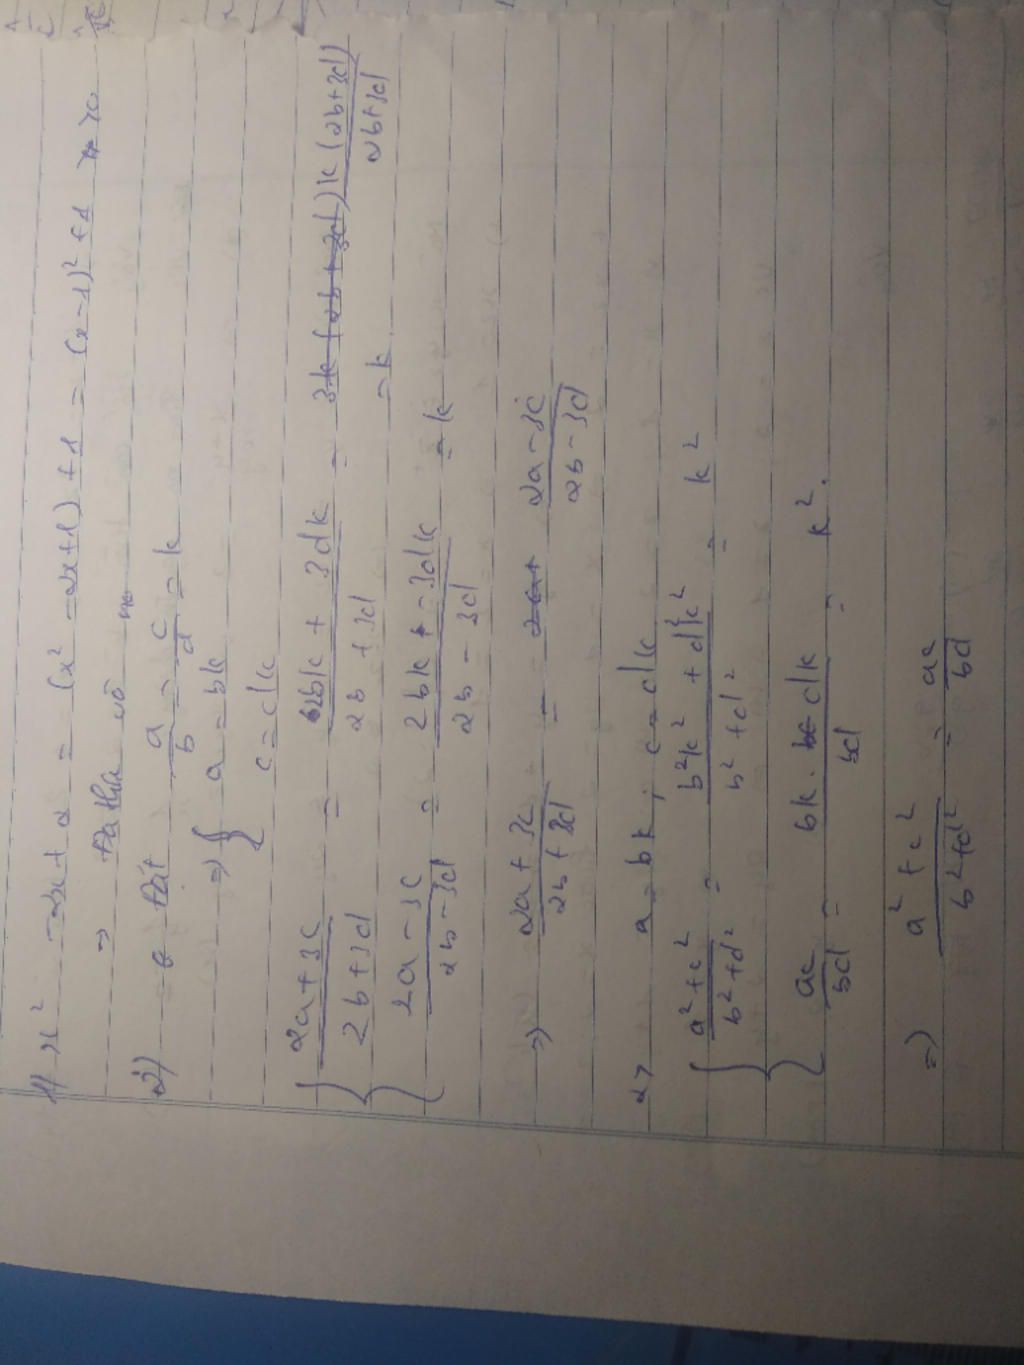 1) x² - 2x + 2 = (x² - 2x + 1) + 1 = (x - 1)² + 1 > 0
=> Đa thức vô no
2) Đặt a/b = c/d = k
=> { a = bk
c = dk
{ (2a + 3c)/(2b + 3d) = (2bk + 3dk)/(2b + 3d) = k(2b + 3d)/(2b + 3d) = k.
(2a - 3c)/(2b - 3d) = (2bk - 3dk)/(2b - 3d) = k
=> (2a + 3c)/(2b + 3d) = (2a - 3c)/(2b - 3d)
2> a = bk ; c = dk
{ (a² + c²)/(b² + d²) = (b²k² + d²k²)/(b² + d²) = k²
ac/bd = (bk . dk)/bd = k².
=> (a² + c²)/(b² + d²) = ac/bd